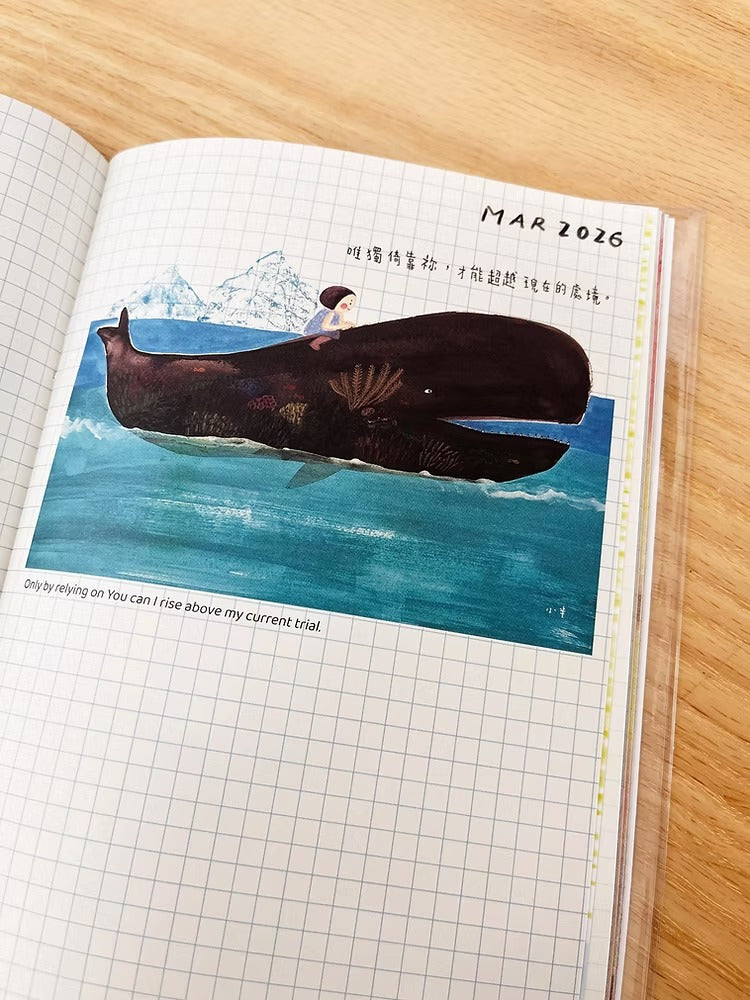 MAR 2026
唯獨倚靠祢，才能超越現在的處境。
Only by relying on You can I rise above my current trial.